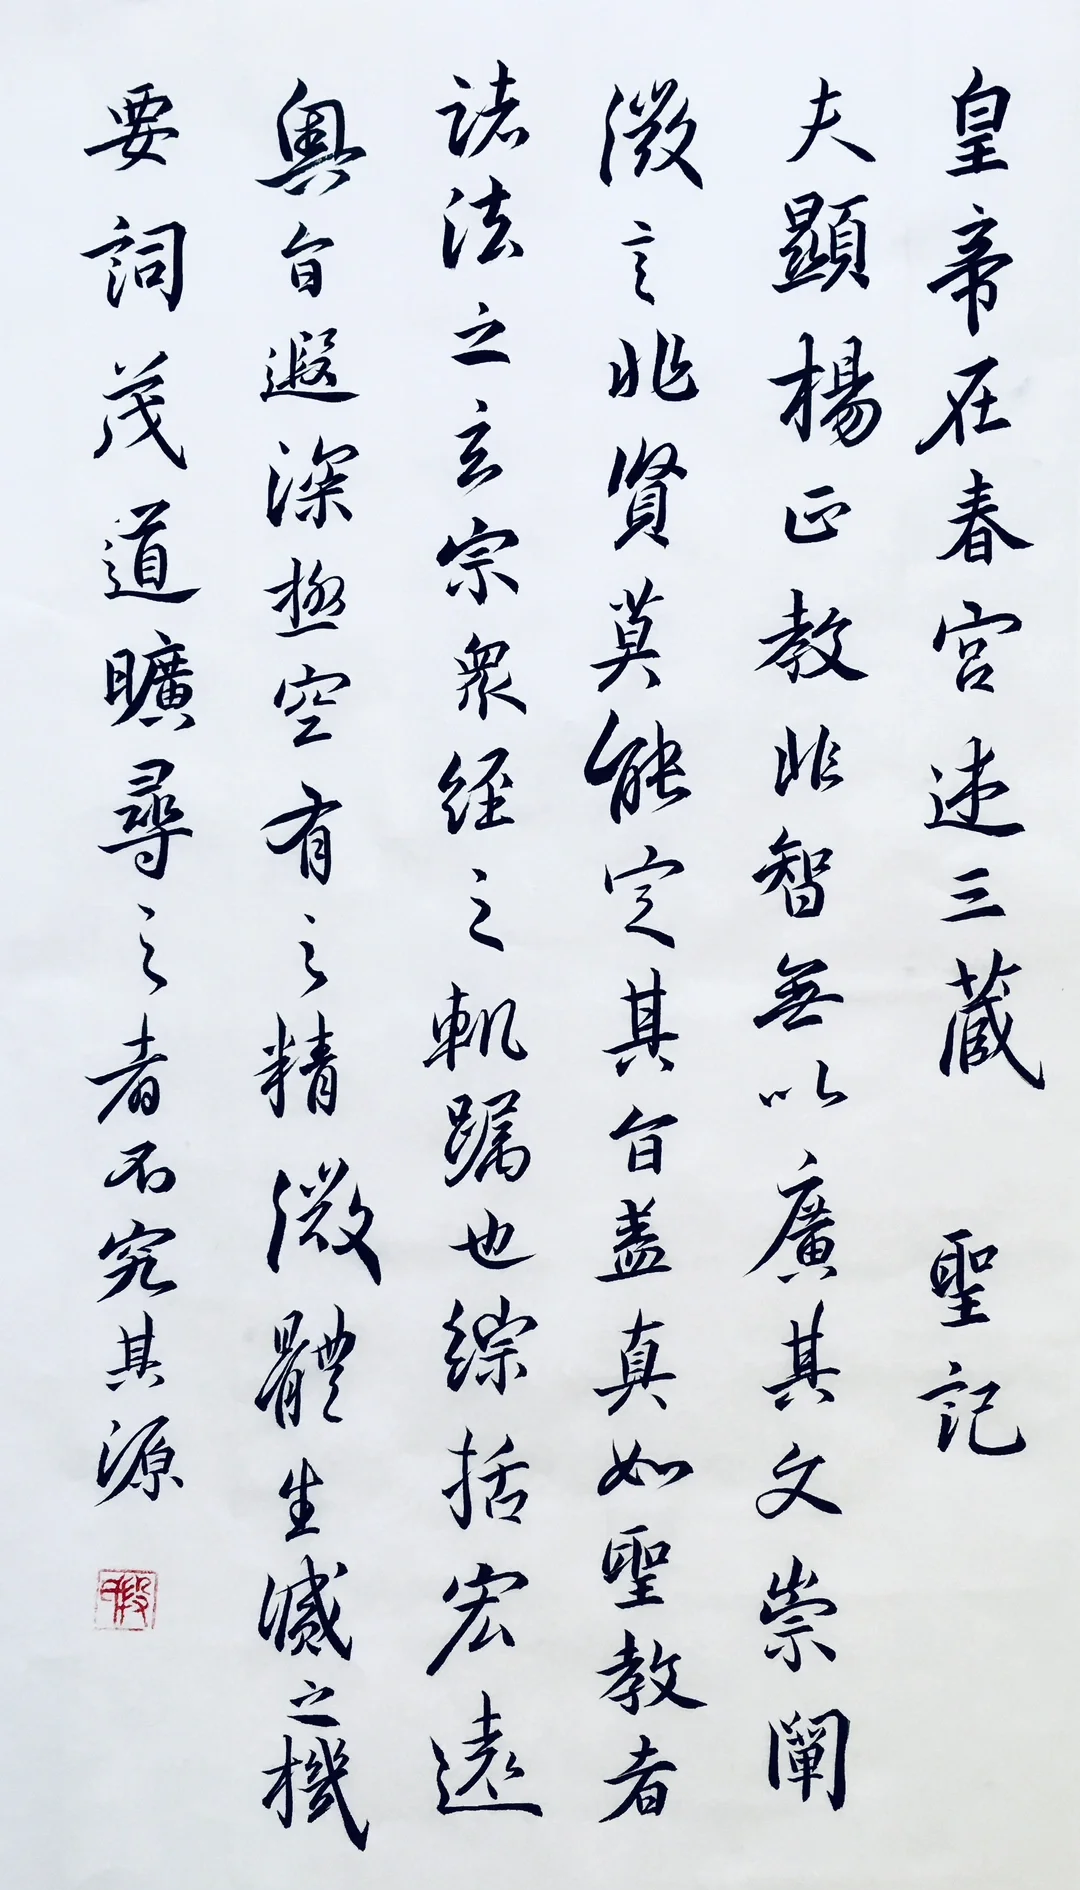 皇帝在春宮述三藏 聖記
夫顯楊正教非智無以廣其文崇闡
微言非賢莫能定其旨蓋真如聖教者
諸法之玄宗眾經之軌躅也綜括宏遠
奧旨遐深極空有之精微體生滅之機
要詞茂道曠尋之者不究其源